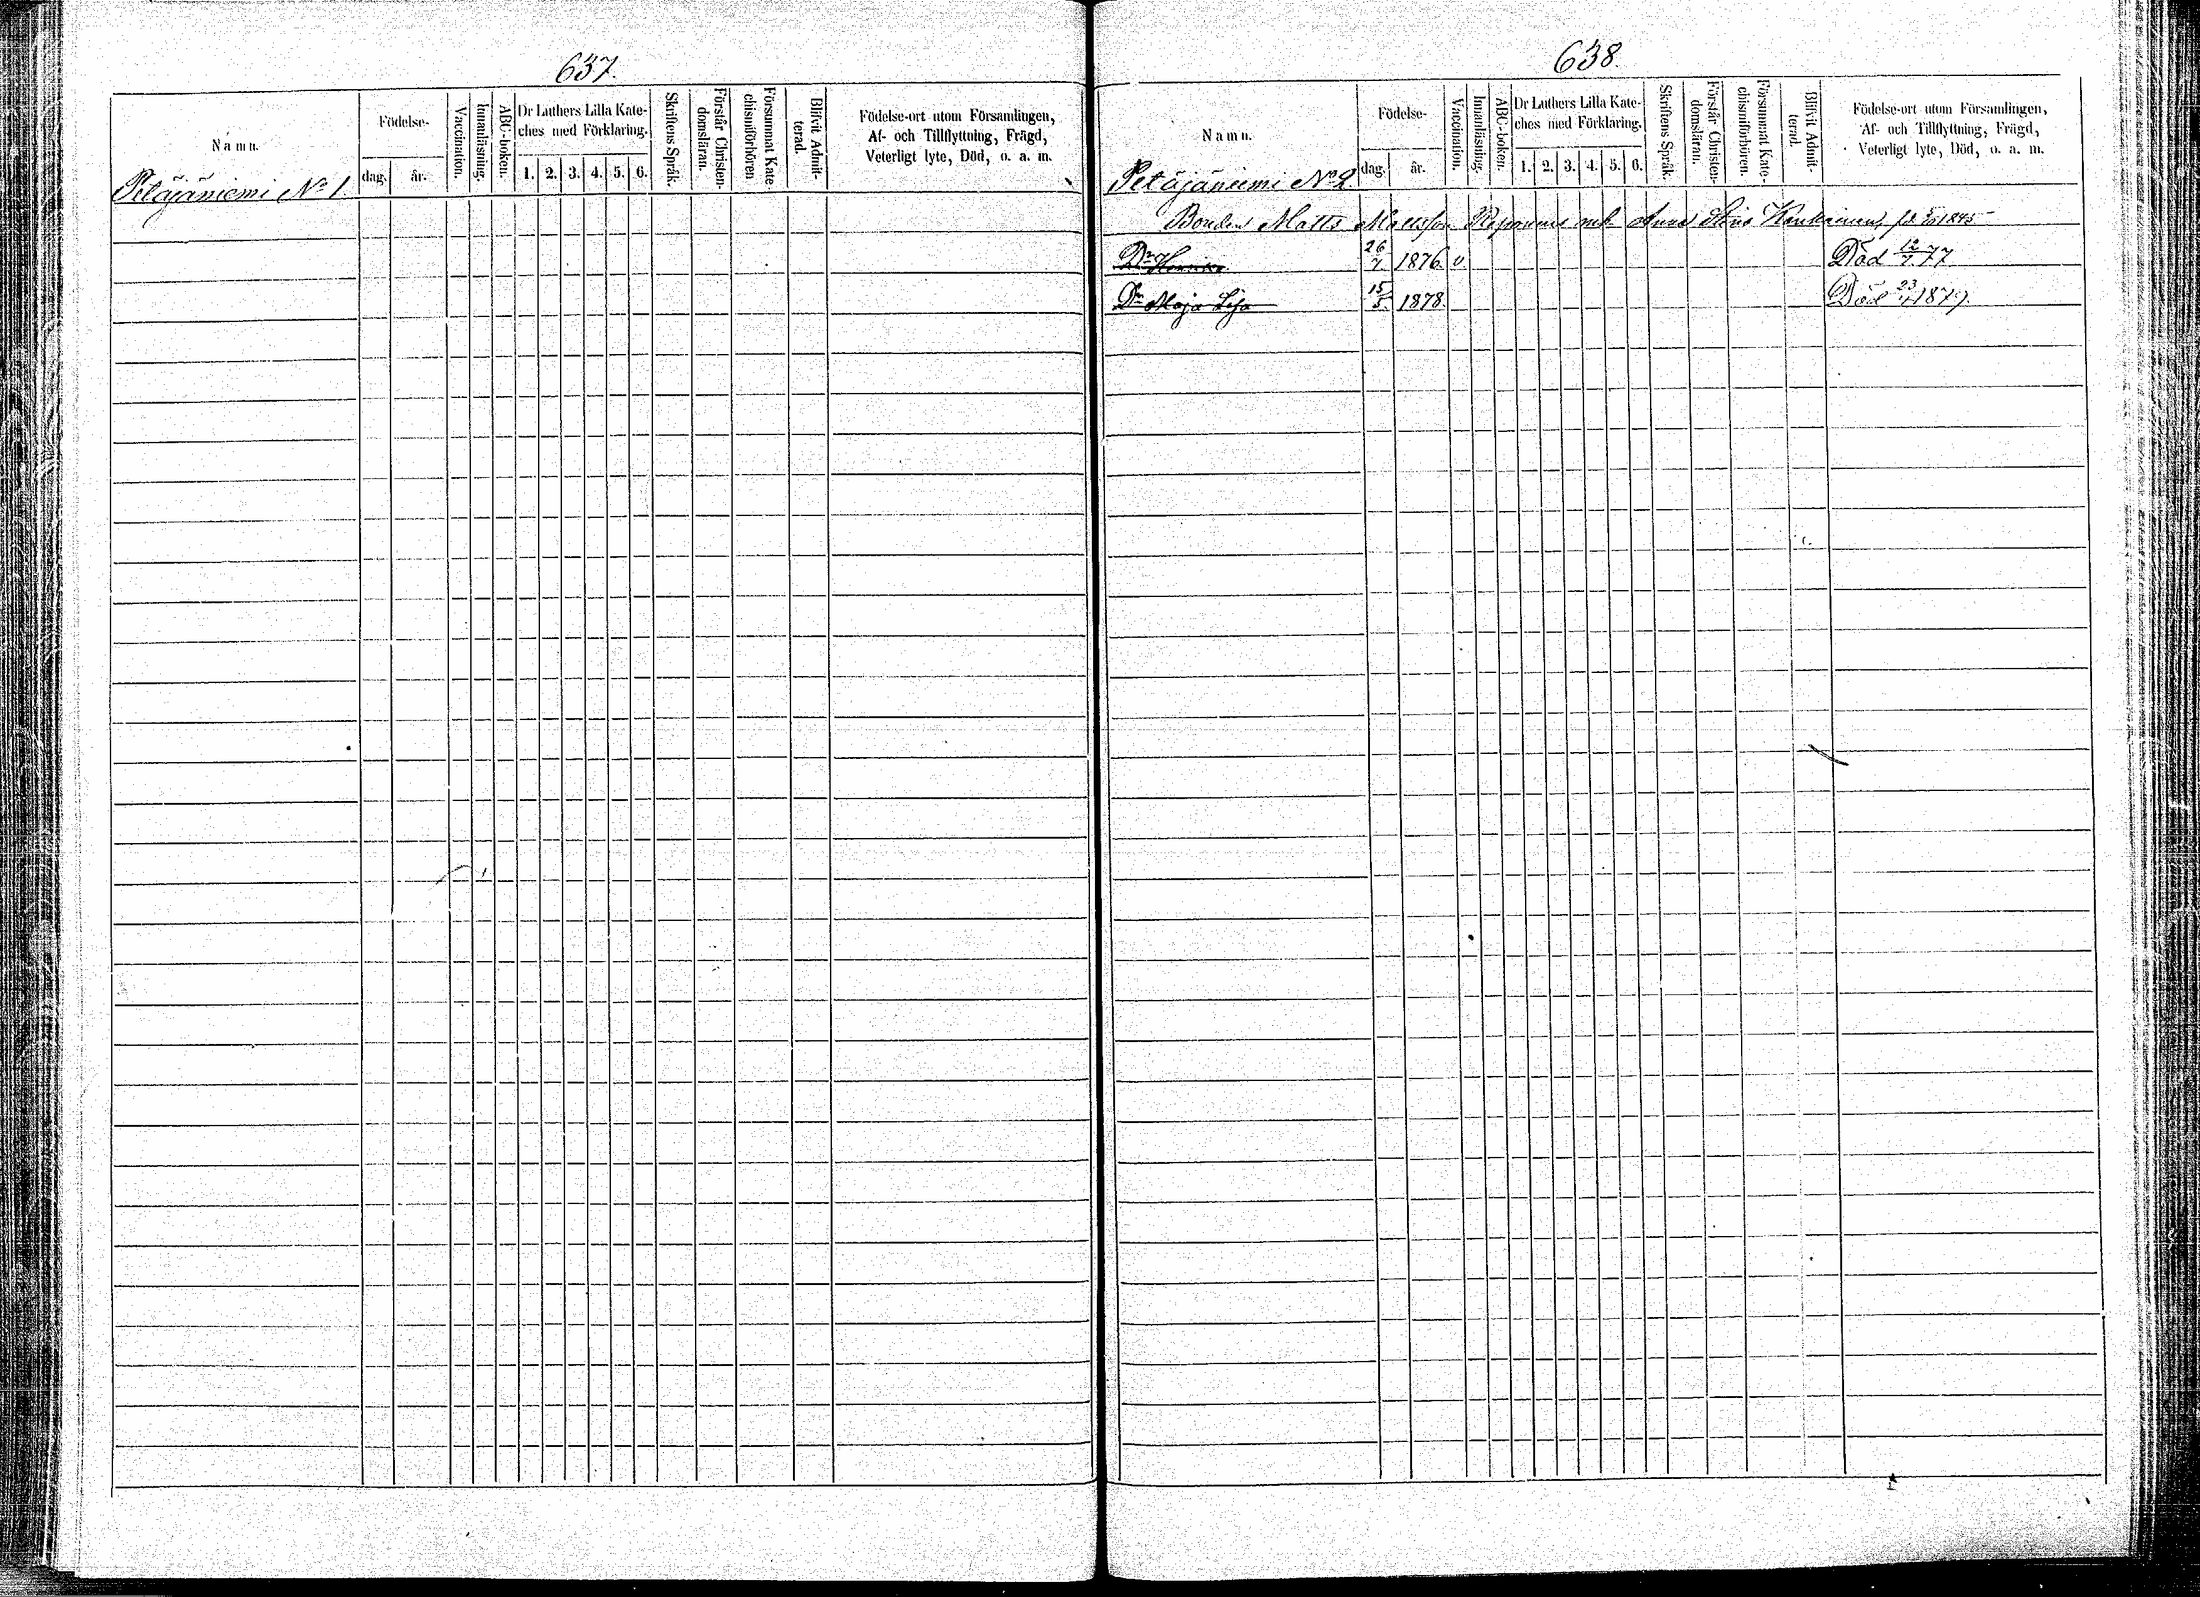 637.
Namn.
Födelse-
dag.
år.
Vaccination.
Innanläsning.
ABC-boken.
Dr Luthers Lilla Kate-
ches med Förklaring.
1. 2. 3. 4. 5. 6.
Skriftens Språk.
Förstår Christen-
domsläran.
Försummat Kate-
chismiförhören
Blifvit Admit-
terad.
Födelse-ort utom Församlingen,
Af- och Tillflyttning, Frägd,
Veterligt lyte, Död, o. a. m.
Petäjäniemi No 1
638
Namn.
Födelse-
dag.
år.
Vaccination.
Innanläsning.
ABC-boken.
Dr Luthers Lilla Kate-
ches med Förklaring.
1. 2. 3. 4. 5. 6.
Skriftens Språk.
Förstår Christen-
domsläran.
Försummat Kate-
chismiförhören.
Blifvit Admit-
terad.
Födelse-ort utom Församlingen,
Af- och Tillflyttning, Frägd,
Veterligt lyte, Död, o. a. m.
Petäjäniemi No 2
Bonden Matts Mattsson Reponens och Anna Stina 1845
Dr 26/7 1876. v. Död 12/7 77
Dr Maja Lisa 15/5 1878. Död 23 1879